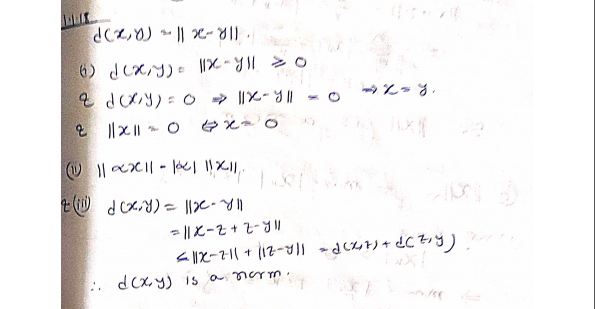 d(x,y) = ||x-y||.
(i) d(x,y) = ||x-y|| ≥ 0
& d(x,y) = 0 ⇒ ||x-y|| = 0 ⇒ x = y.
& ||x|| = 0 ⇔ x = 0
(ii) ||αx|| = |α| ||x||.
& (iii) d(x,y) = ||x-y||
= ||x-z+z-y||
≤ ||x-z|| + ||z-y|| = d(x,z) + d(z,y)
∴ d(x,y) is a norm.